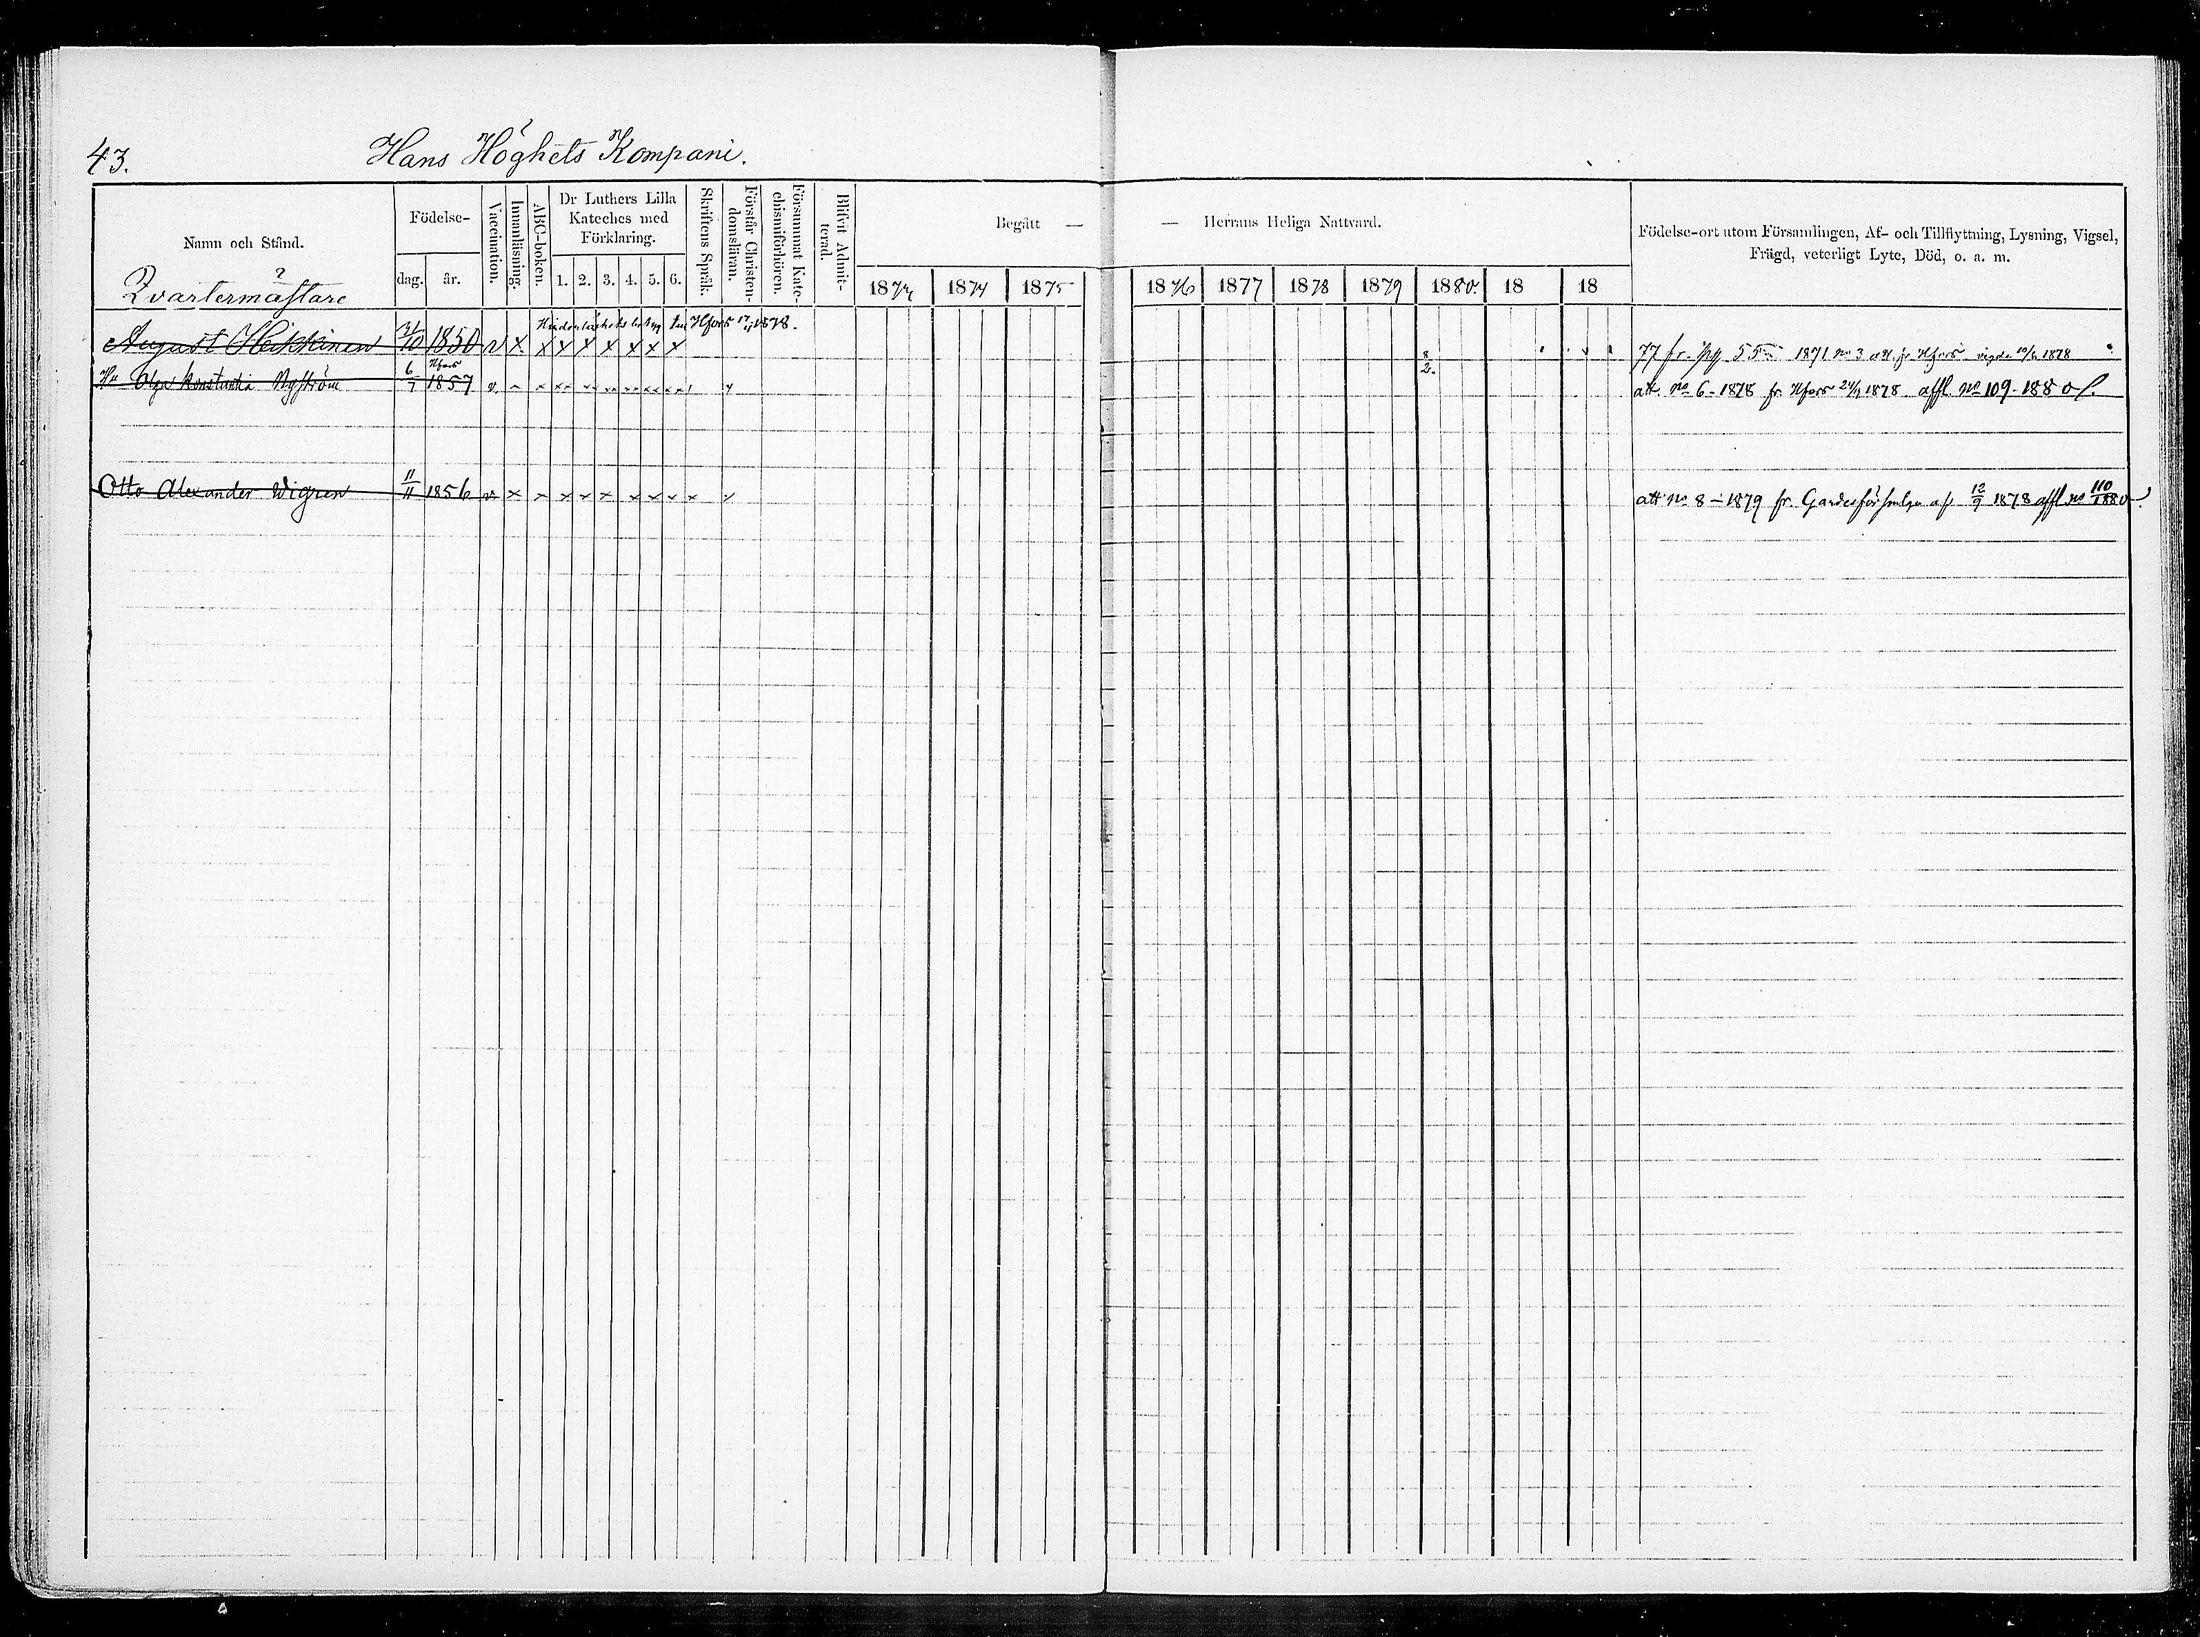 43. Hans Höghets Kompani.
Namn och Stånd.
Födelse-
dag. år.
Vaccination.
Innanläsning.
ABC-boken.
Dr Luthers Lilla
Kateches med
Förklaring.
1. 2. 3. 4. 5. 6.
Skriftens Språk.
Förstår Christen-
domsläran.
Försummat Kate-
chismiförhören.
Blifvit Admit-
terad.
Begått — — Herrans Heliga Nattvard.
1874 1875 1876 1877 1878 1879 1880. 18 18
Födelse-ort utom Församlingen, Af- och Tillflyttning, Lysning, Vigsel,
Frägd, veterligt Lyte, Död, o. a. m.
Qvartermästare
Hfors 17/ 1878.
August Heikkinen 1850 v x x x x x x x x 77 fr. pg. 55 1871 no 3 att. fr. Hfors vigda 1878
Hfors
Hu Olga Konstantia Nyström 6/7 1857 v. 8/2. att. no 6 - 1878 fr. Hfors 1878. affl. no 109 - 1880
Otto Alexander Wigren 11/11 1856 v x x x x x x x x x att no 8 - 1879 fr. af 12/9 1878 affl. no 110/1880